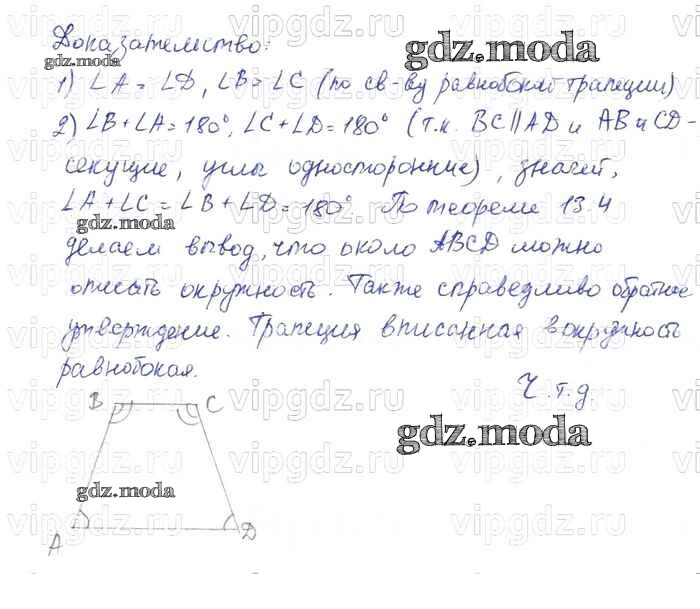 Доказательство:
gdz.moda
1) ∠A = ∠D, ∠B = ∠C (по св-ву равнобокой трапеции)
gdz.moda
2) ∠B + ∠A = 180°, ∠C + ∠D = 180° (т.к. BC || AD и AB и CD -
секущие, углы односторонние), значит,
∠A + ∠C = ∠B + ∠D = 180°. По теореме 13.4
gdz.moda
делаем вывод, что около ABCD можно
описать окружность. Также справедливо обратное
утверждение. Трапеция вписанная в окружность
равнобокая.
Ч.т.д.
B C
gdz.moda
gdz.moda
A D
vipgdz.ru